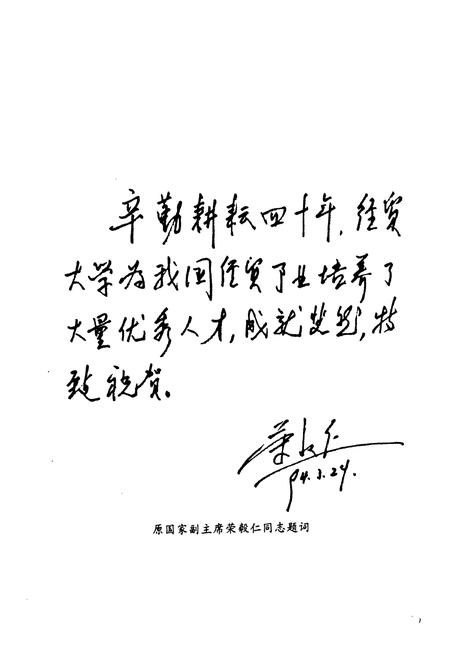 辛勤耕耘四十年，经贸
大学为我国经贸事业培养了
大量优秀人才，成就斐然，特
致祝贺。
荣毅仁
94.3.24.
原国家副主席荣毅仁同志题词
1